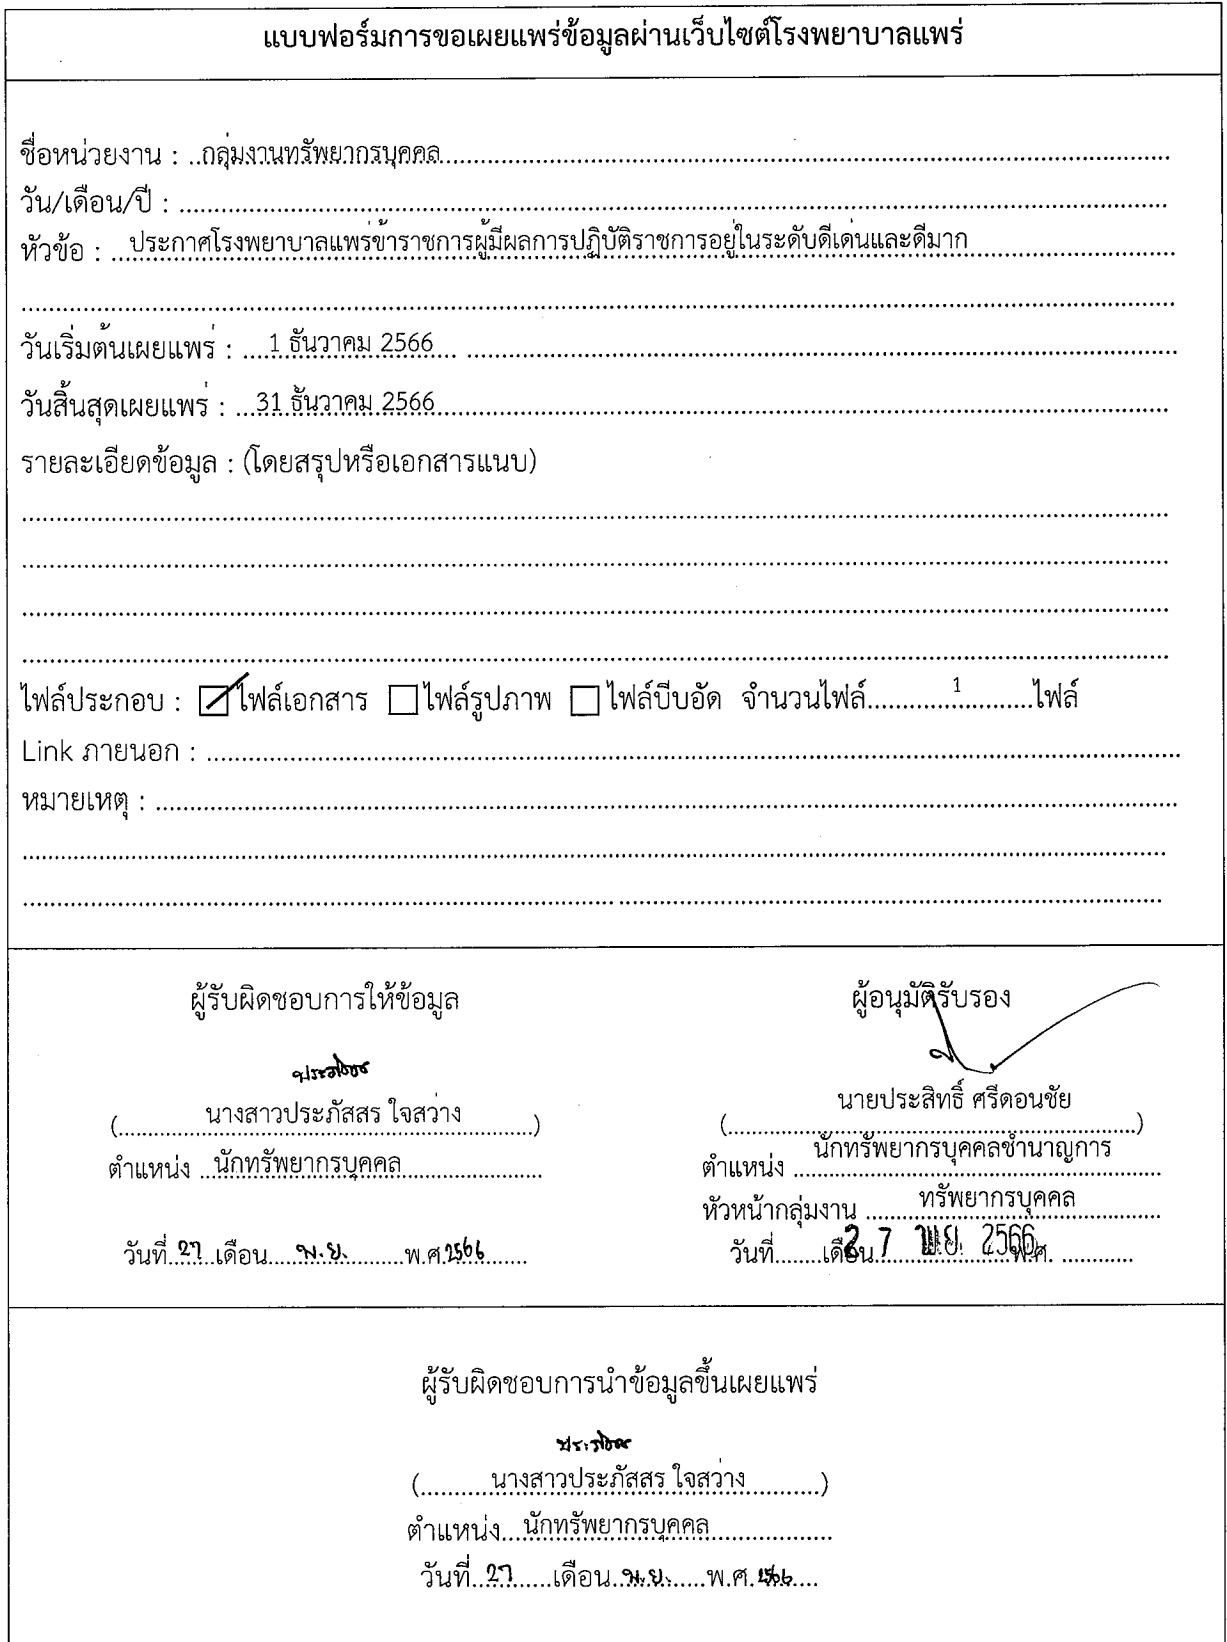 แบบฟอร์มการขอเผยแพร่ข้อมูลผ่านเว็บไซต์โรงพยาบาลแพร่
ชื่อหน่วยงาน : ..กลุ่มงานทรัพยากรบุคคล
วัน/เดือน/ปี :
หัวข้อ : ...ประกาศโรงพยาบาลแพร่ข้าราชการผู้มีผลการปฏิบัติราชการอยู่ในระดับดีเด่นและดีมาก
วันเริ่มต้นเผยแพร่ : ....1 ธันวาคม 2566
วันสิ้นสุดเผยแพร่ : ...31 ธันวาคม 2566
รายละเอียดข้อมูล : (โดยสรุปหรือเอกสารแนบ)
ไฟล์ประกอบ : ☑ไฟล์เอกสาร ☐ไฟล์รูปภาพ ☐ไฟล์บีบอัด จำนวนไฟล์..........1..........ไฟล์
Link ภายนอก :
หมายเหตุ :
ผู้รับผิดชอบการให้ข้อมูล
ประภัสสร
(..........นางสาวประภัสสร ใจสว่าง..........)
ตำแหน่ง ..นักทรัพยากรบุคคล
วันที่.27..เดือน....พ.ย.........พ.ศ.2566
ผู้อนุมัติรับรอง
(..........นายประสิทธิ์ ศรีดอนชัย..........)
ตำแหน่ง ..นักทรัพยากรบุคคลชำนาญการ
หัวหน้ากลุ่มงาน ........ทรัพยากรบุคคล
วันที่........เดือน....................พ.ศ. ............
27 พ.ย. 2566
ผู้รับผิดชอบการนำข้อมูลขึ้นเผยแพร่
ประภัสสร
(..........นางสาวประภัสสร ใจสว่าง..........)
ตำแหน่ง...นักทรัพยากรบุคคล
วันที่..27.......เดือน..พ.ย.......พ.ศ.2566....